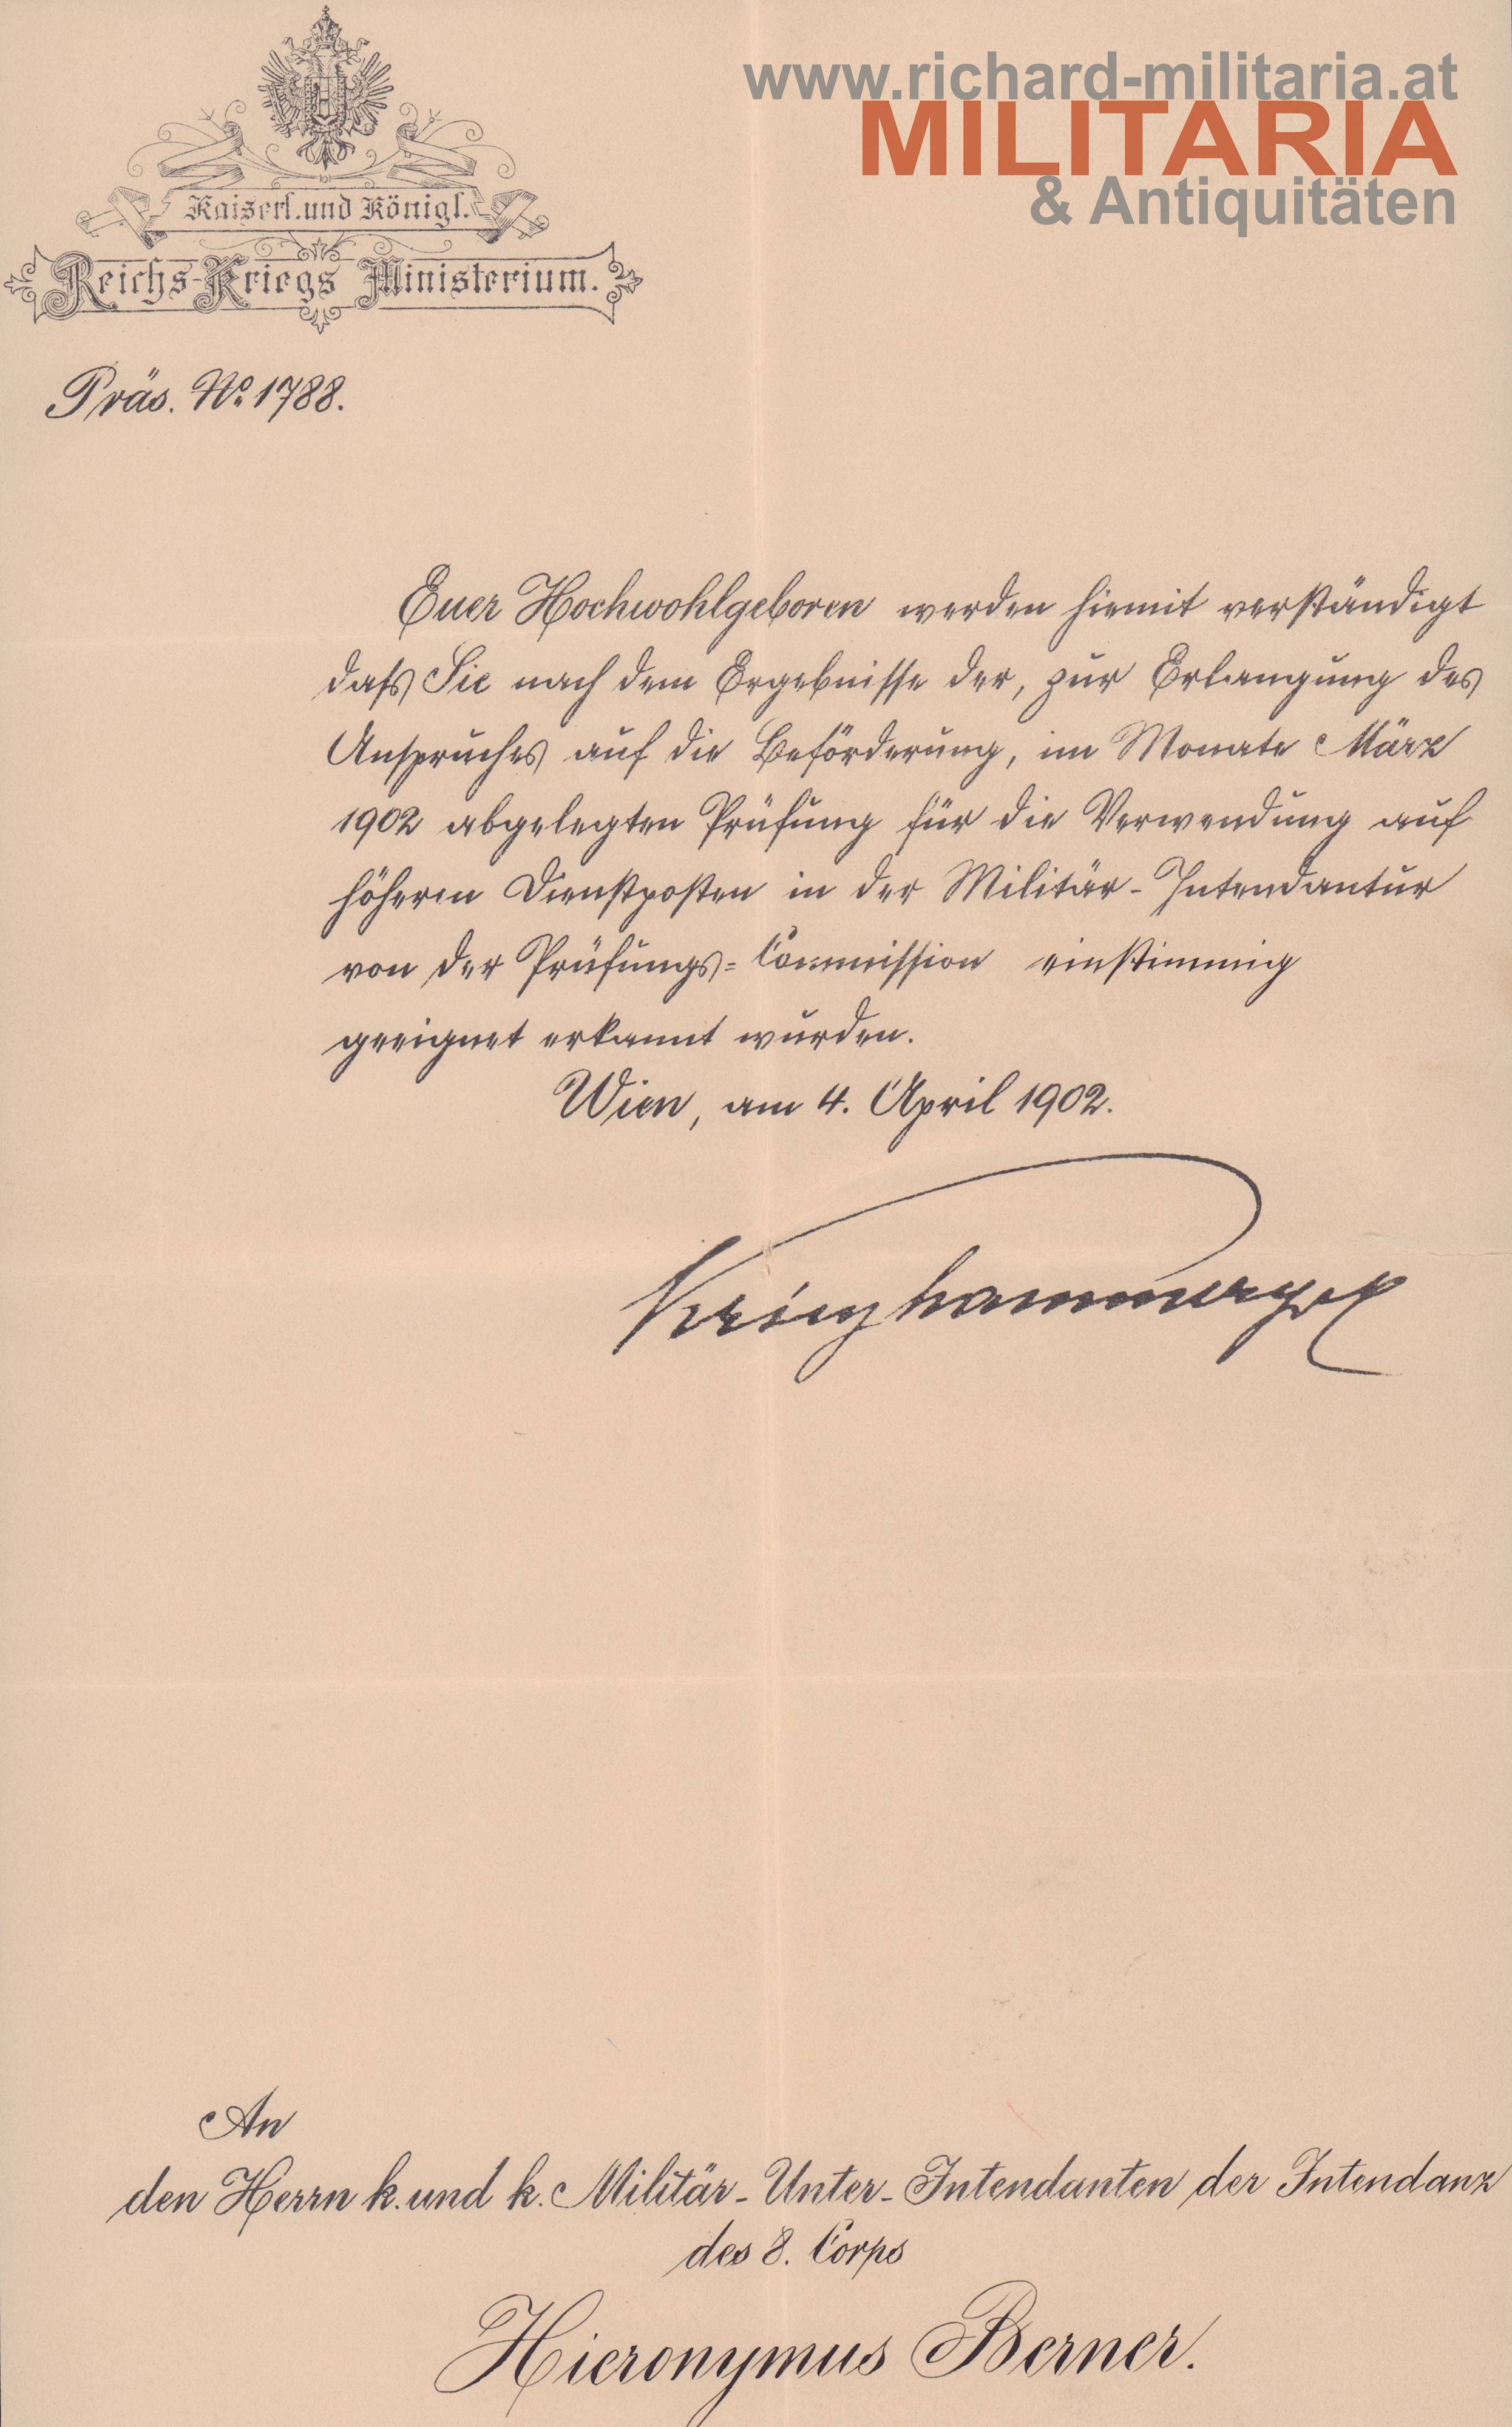 www.richard-militaria.at
MILITARIA
& Antiquitäten
Kaiserl. und Königl.
Reichs-Kriegs Ministerium.
Präs. No. 1788.
Euer Hochwohlgeboren werden hiemit verständigt
dafs Sie nach dem Ergebnisse der, zur Erlangung des
Anspruches auf die Beförderung, im Monate März
1902 abgelegten Prüfung für die Verwendung auf
höheren Dienstposten in der Militär-Intendantur
von der Prüfungs=Commission einstimmig
geeignet erkannt wurden.
Wien, am 4. April 1902.
Krieghammer
An
den Herrn k. und k. Militär-Unter-Intendanten der Intendanz
des 8. Corps
Hieronymus Berner.